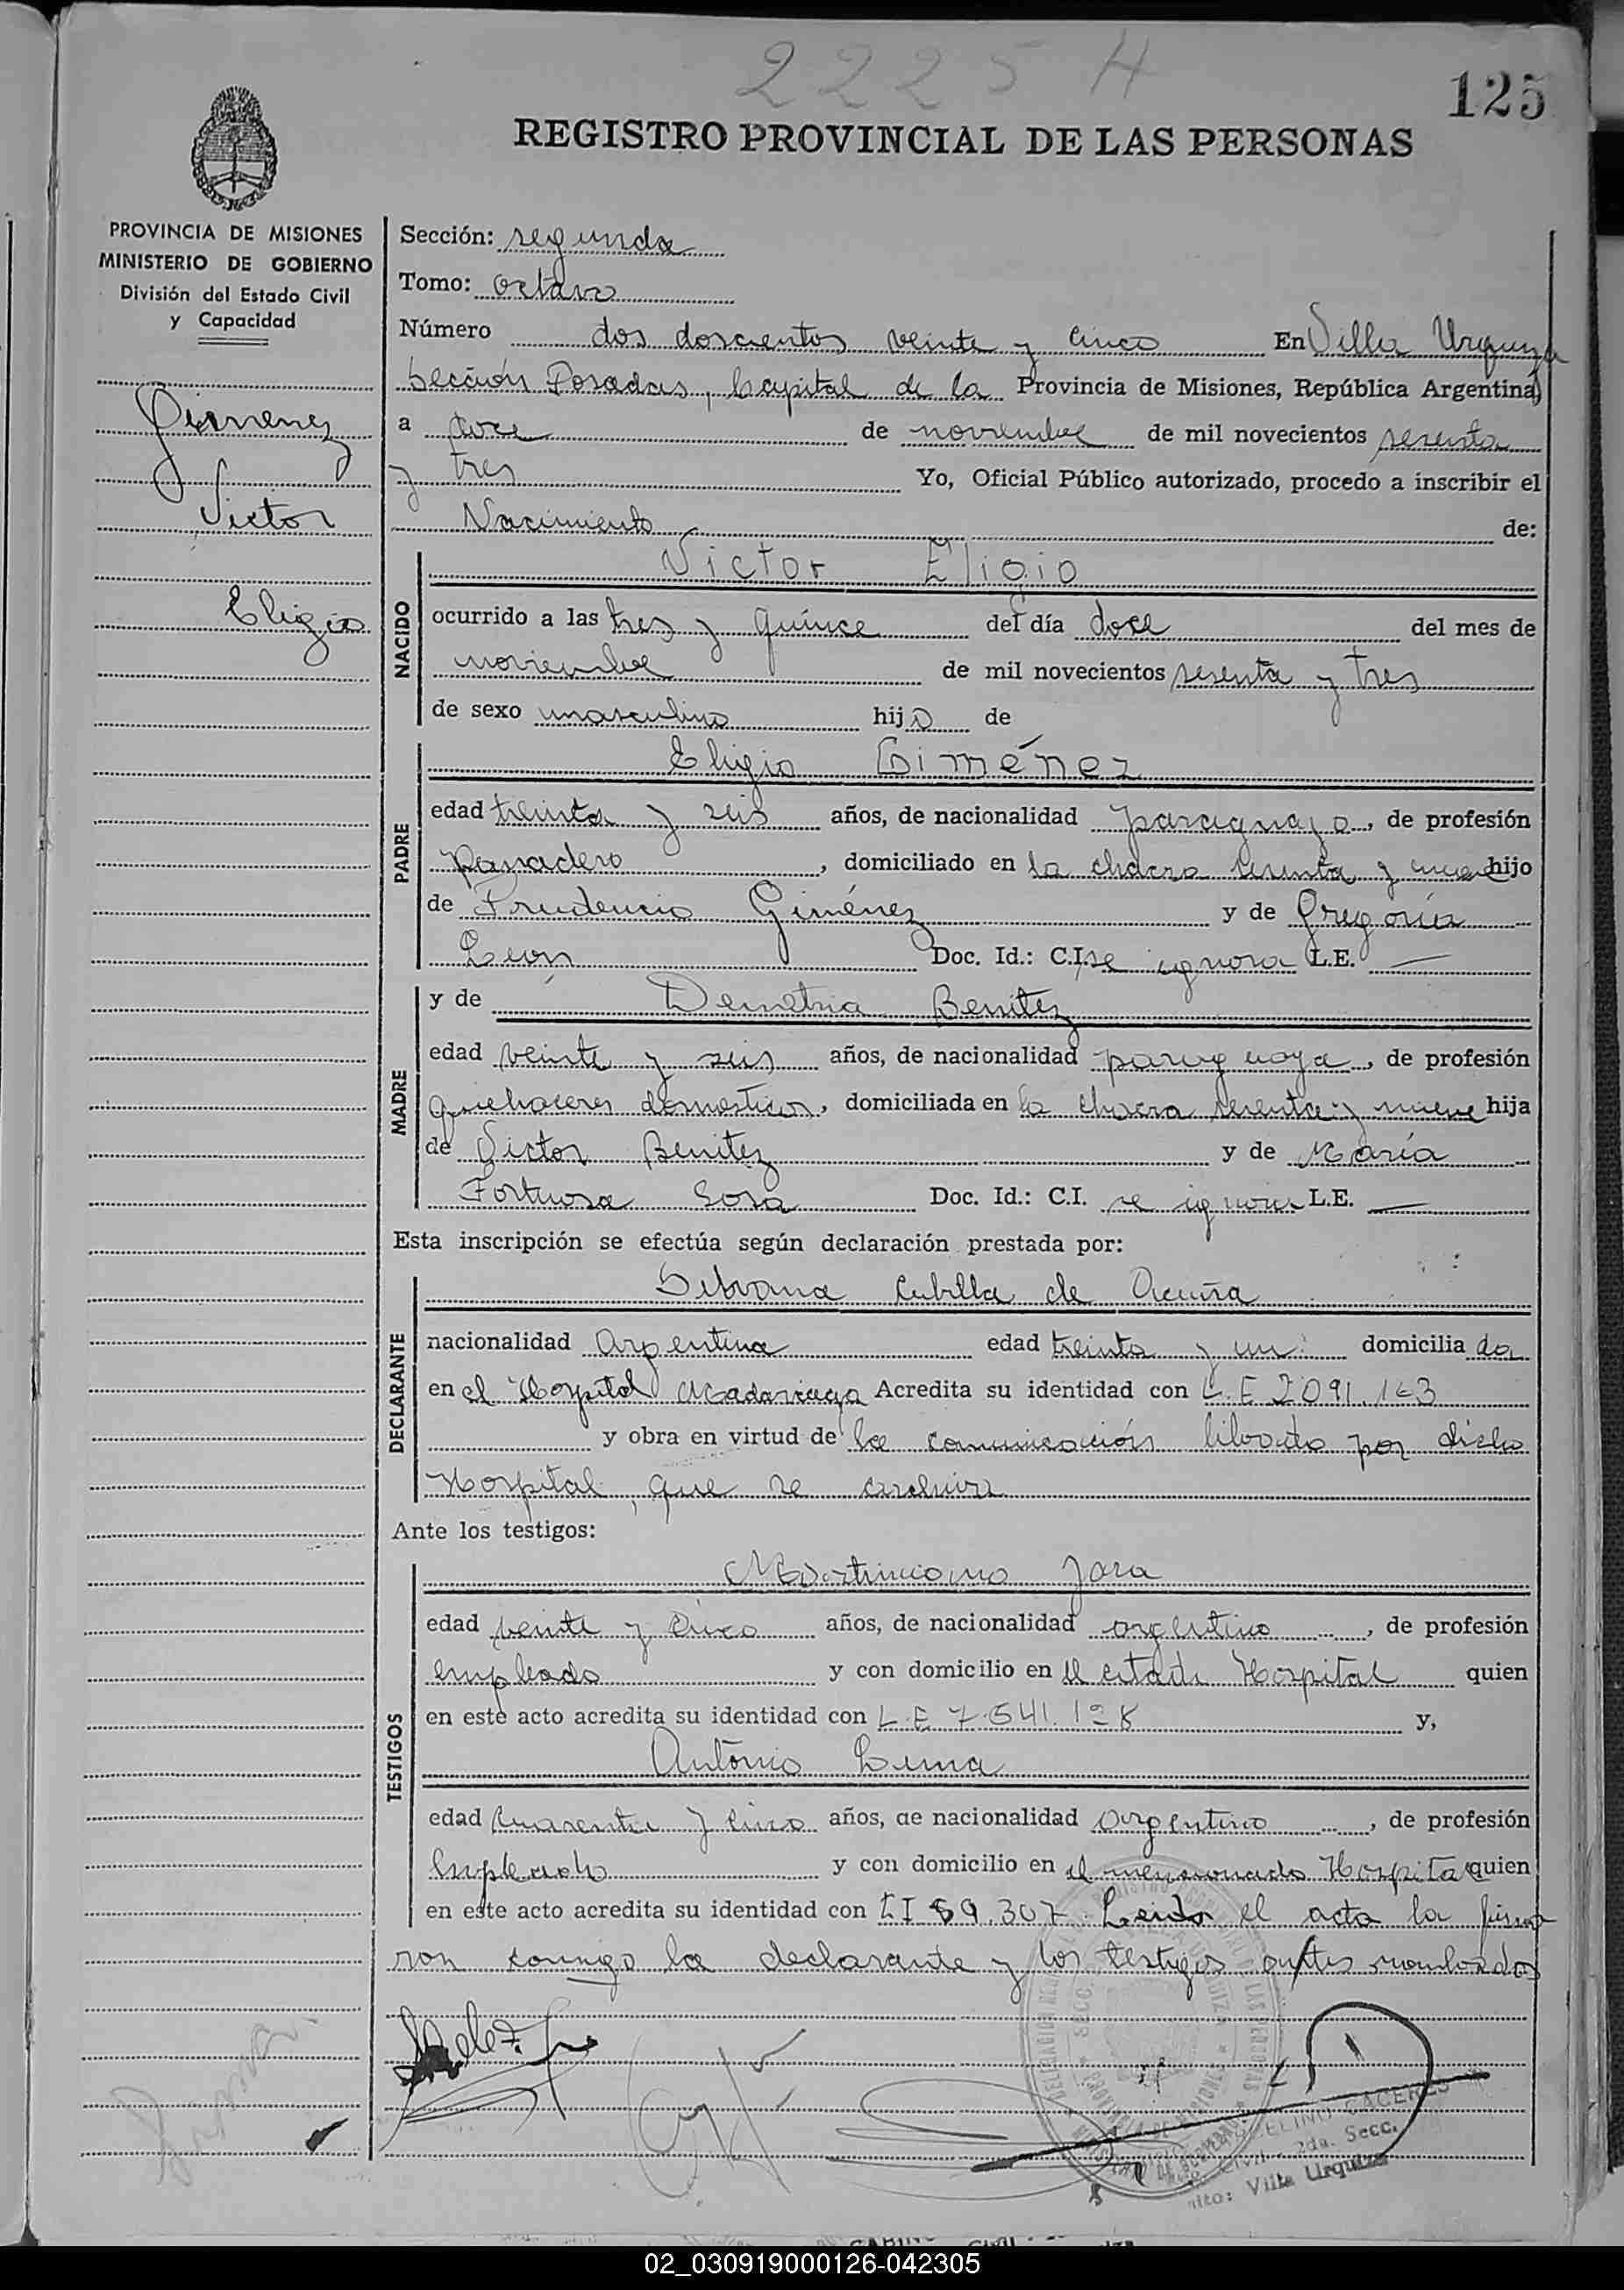 2225 H
125
REGISTRO PROVINCIAL DE LAS PERSONAS
PROVINCIA DE MISIONES
MINISTERIO DE GOBIERNO
División del Estado Civil
y Capacidad
Gimenez
Victor
Eligio
Sección: segunda
Tomo: octavo
Número dos doscientos veinte y cinco En Villa Urquiza
Sección Posadas, Capital de la Provincia de Misiones, República Argentina,
a doce de noviembre de mil novecientos sesenta
y tres Yo, Oficial Público autorizado, procedo a inscribir el
Nacimiento de:
NACIDO
Victor Eligio
ocurrido a las tres y quince del día doce del mes de
noviembre de mil novecientos sesenta y tres
de sexo masculino hijo de
PADRE
Eligio Giménez
edad treinta y seis años, de nacionalidad paraguayo, de profesión
panadero, domiciliado en la chacra sesenta y nueve hijo
de Prudencio Giménez y de Gregoria
León Doc. Id.: C.I. se ignora L.E. —
MADRE
y de Demetria Benitez
edad veinte y seis años, de nacionalidad paraguaya, de profesión
quehaceres domesticos, domiciliada en la chacra sesenta y nueve hija
de Victor Benitez y de María
Fortunosa Sosa Doc. Id.: C.I. se ignora L.E. —
Esta inscripción se efectúa según declaración prestada por:
DECLARANTE
Silvana Cubilla de Acuña
nacionalidad Argentina edad treinta y un domicilia da
en el Hospital Madariaga Acredita su identidad con L.E 2.091.163
y obra en virtud de la comunicación librada por dicho
Hospital, que se archiva
Ante los testigos:
TESTIGOS
Martiniano Jara
edad veinte y cinco años, de nacionalidad argentino, de profesión
empleado y con domicilio en el citado Hospital quien
en este acto acredita su identidad con L.E 7.541.128 y,
Antonio Lima
edad cuarenta y cinco años, de nacionalidad argentino, de profesión
empleado y con domicilio en el mencionado Hospital quien
en este acto acredita su identidad con C I 59.307. Leida el acta la firma
ron conmigo la declarante y los testigos antes nombrados
CELINO CACERES
Civil - 2da. Secc.
Villa Urquiza
02_030919000126-042305